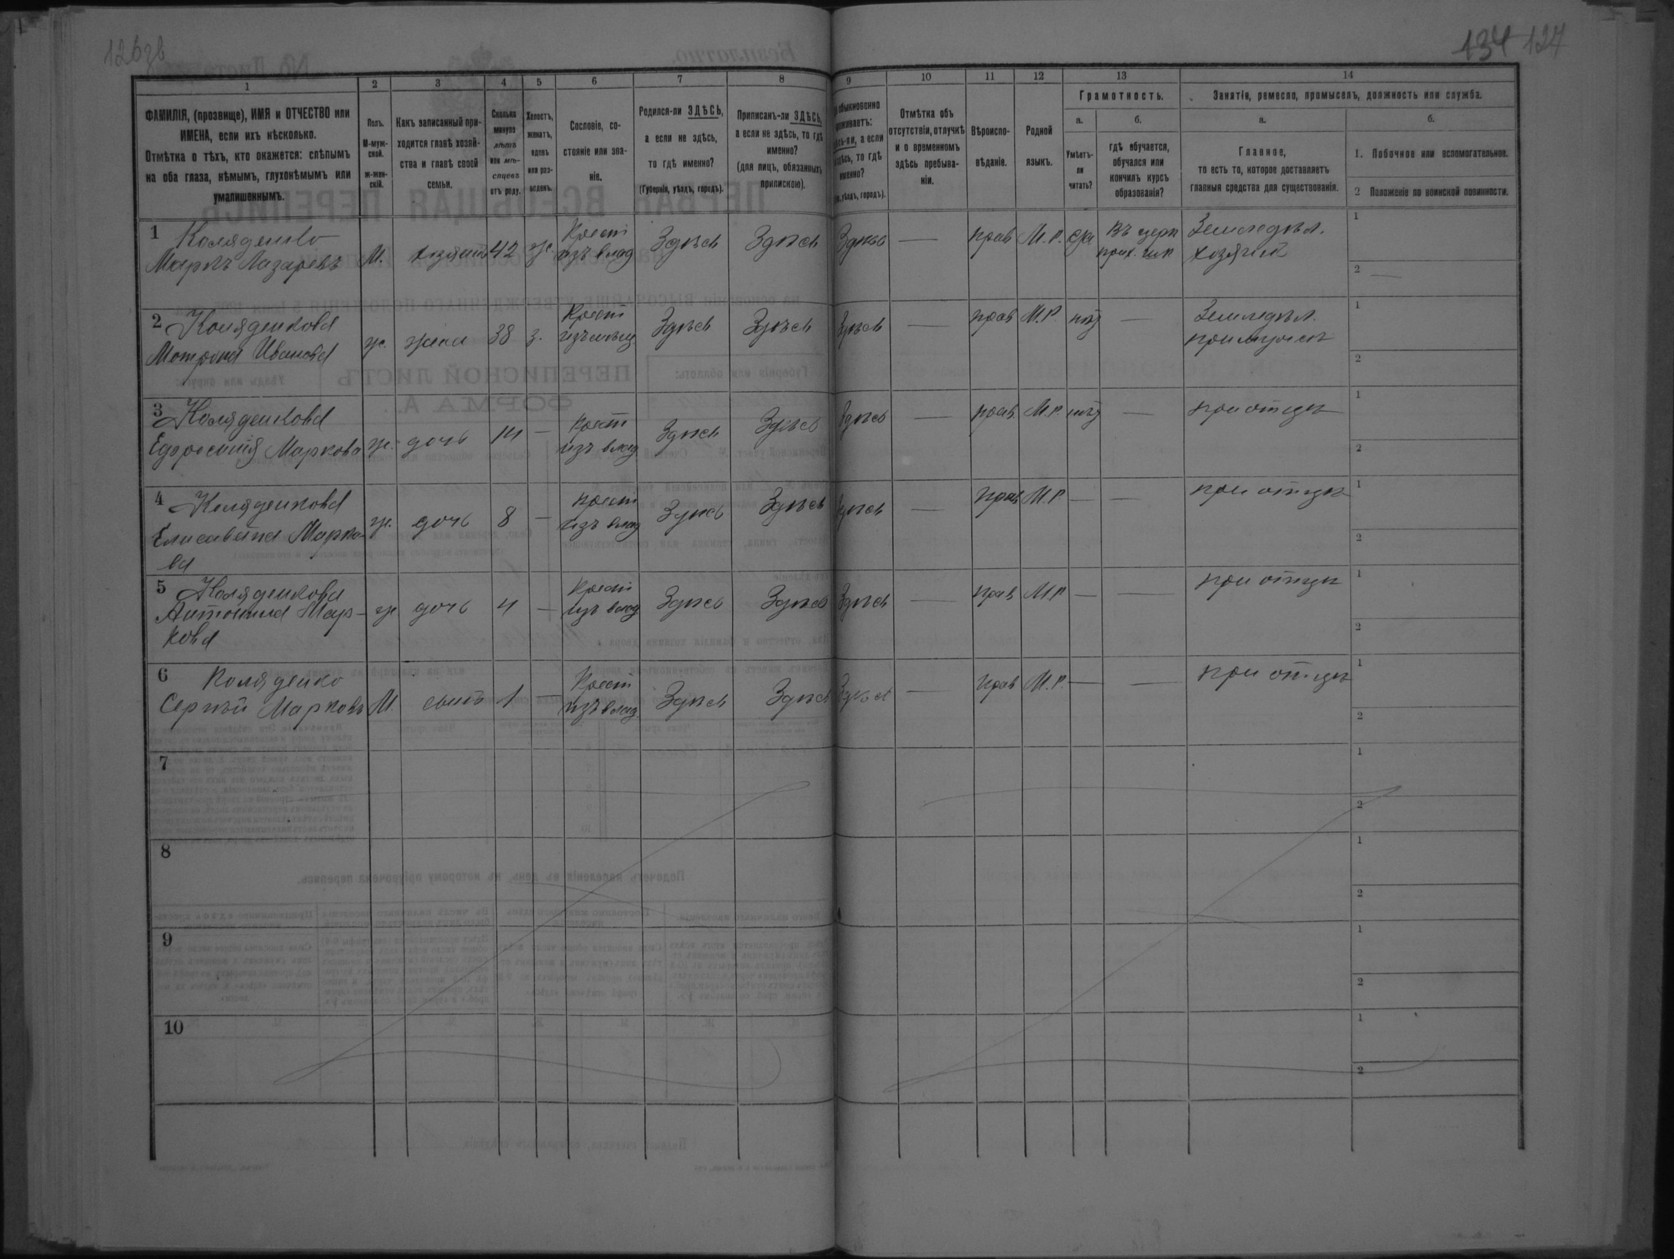 126зв
134 127
1 2 3 4 5 6 7 8 9 10 11 12 13 14
ФАМИЛІЯ, (прозвище), ИМЯ и ОТЧЕСТВО или
ИМЕНА, если ихъ нѣсколько.
Отмѣтка о тѣхъ, кто окажется: слѣпымъ
на оба глаза, нѣмымъ, глухонѣмымъ или
умалишеннымъ.
Полъ.
М-муж-
ской.
ж-жен-
скій.
Какъ записанный при-
ходится главѣ хозяй-
ства и главѣ своей
семьи.
Сколько
минуло
лѣтъ
или мѣ-
сяцевъ
отъ роду.
Холостъ,
женатъ,
вдовъ
или раз-
веденъ.
Сословіе, со-
стояніе или зва-
ніе.
Родился-ли ЗДѢСЬ,
а если не здѣсь,
то гдѣ именно?
(Губернія, уѣздъ, городъ).
Приписанъ-ли ЗДѢСЬ,
а если не здѣсь, то гдѣ
именно?
(для лицъ, обязанныхъ
припискою).
обыкновенно
а если
то гдѣ
именно?
уѣздъ, городъ).
Отмѣтка объ
отсутствіи, отлучкѣ
и о временномъ
здѣсь пребыва-
ніи.
Вѣроиспо-
вѣданіе.
Родной
языкъ.
Грамотность.
а.
Умѣетъ-
ли
читать?
б.
гдѣ обучается,
обучался или
кончилъ курсъ
образованія?
Занятія, ремесло, промыселъ, должность или служба.
а.
Главное,
то есть то, которое доставляетъ
главныя средства для существованія.
б.
1. Побочное или вспомогательное.
2 Положеніе по воинской повинности.
1 Коляденко
Маркъ Лазаревъ М. хозяинъ 42 ж. Крест изъ влад Здѣсь Здѣсь Здѣсь — прав М.Р. да Въ церк прих. шк Земледѣл. хозяинъ
1
2 —
2 Коляденкова
Матрона Иванова ж. жена 38 з. Крест изъ влад Здѣсь Здѣсь Здѣсь — прав М.Р. нѣт — Земледѣл. при мужѣ
1
2
3 Коляденкова
Ефросинія Маркова ж. дочь 14 — Крест изъ влад Здѣсь Здѣсь Здѣсь — прав М.Р. нѣт — при отцѣ
1
2
4 Коляденкова
Елисавета Марко-
ва ж. дочь 8 — Крест изъ влад Здѣсь Здѣсь Здѣсь — прав М.Р. — — при отцѣ
1
2
5 Коляденкова
Антонина Мар-
кова ж дочь 4 — Крест изъ влад Здѣсь Здѣсь Здѣсь — прав М.Р. — — при отцѣ
1
2
6 Коляденко
Сергѣй Марковъ М сынъ 1 — Крест изъ влад Здѣсь Здѣсь Здѣсь — прав М.Р. — — при отцѣ
1
2
7
1
2
8
1
2
9
1
2
10
1
2